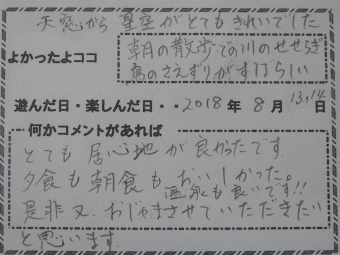 天窓から星空がとてもきれいでした
よかったよココ
朝の散歩での川のせせらぎ
鳥のさえずりがすばらしい
遊んだ日・楽しんだ日・・2018年8月13,14日
何かコメントがあれば
とても居心地が良かったです
夕食も朝食もおいしかった。
温泉も良いです!!
是非又、おじゃまさせていただきたい
と思います。